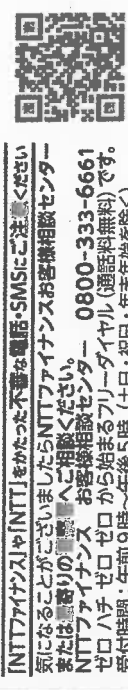 「NTTファイナンス」や「NTT」をかたった不審な電話・SMSにご注意ください
気になることがございましたらNTTファイナンスお客様相談センター
または最寄りの へご相談ください。
NTTファイナンス お客様相談センター 0800-333-6661
ゼロ ハチ ゼロ ゼロ から始まるフリーダイヤル(通話料無料)です。
受付時間:午前9時~午後5時(土日・祝日・年末年始を除く)